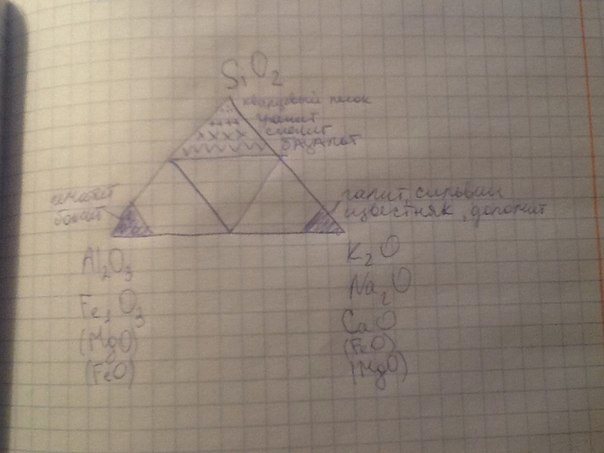 SiO2
кварцевый песок
гранит
сиенит
базальт
боксит
галит, сильвин
известняк, доломит
Al2O3
Fe2O3
(MgO)
(FeO)
K2O
Na2O
CaO
(FeO)
(MgO)